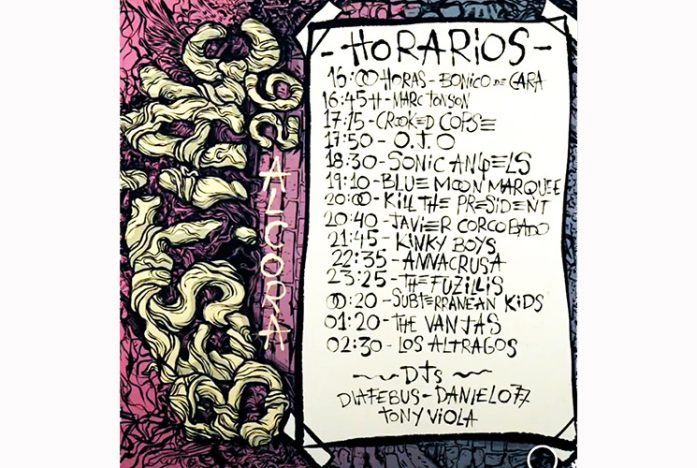 -HORARIOS-
16:00 HORAS - BONICO DE CARA
16:45 H - MARC TONSON
17:15 - CROOKED COPSE
17:50 - O.J.O
18:30 - SONIC ANGELS
19:10 - BLUE MOON MARQUEE
20:00 - KILL THE PRESIDENT
20:40 - JAVIER CORCOBADO
21:45 - KINKY BOYS
22:35 - ANNACRUSA
23:25 - THE FUZILLIS
00:20 - SUBTERRANEAN KIDS
01:20 - THE VANJAS
02:30 - LOS ALTRAGOS
DJs
DIAFEBUS - DANIELO77
TONY VIOLA
ALCORA